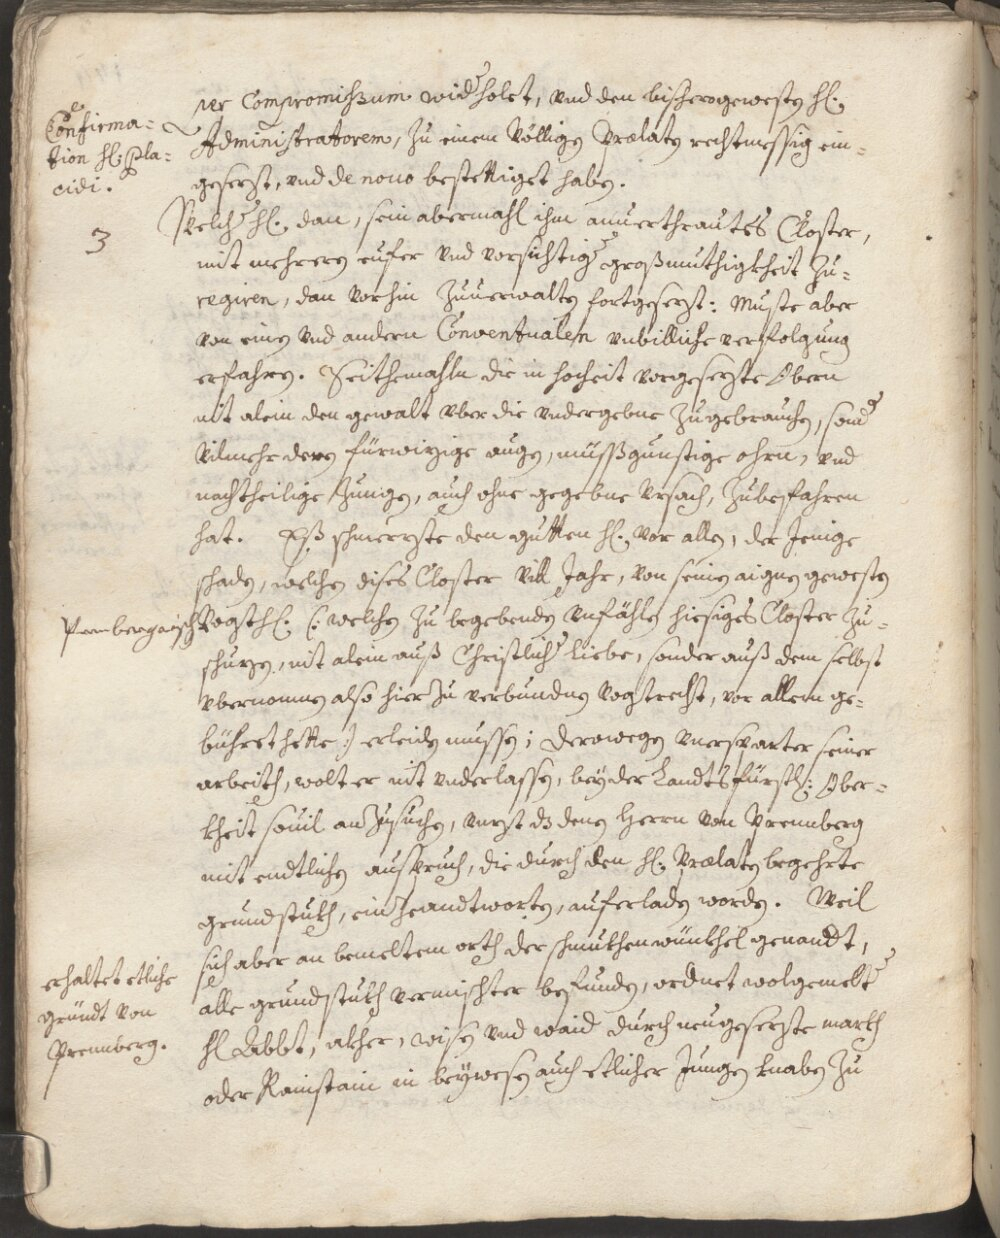 per Compromissum widerholet, vnd den bishero gewesten H:
Confirma=
tion H: Pla=
cidi.
Administratorem, zu einem völligen Prælaten rechtmessig ein=
gesezt, vnd de nouo bestettiget haben.
3
Welcher H: dan, sein abermahl ihm anuerthrautes Closter,
mit mehreren eufer vnd vorsichtiger großmuthigkheit zu=
regiren, dan vorhin zuuerwalten fortgesezt: Muste aber
von einen vnd andern Conventualen vnbilliche verfolgung
erfahren. Seithemahln die in hocheit vorgesezte Obern
nit alein den gewalt vber die vndergebne zugebrauchen, sonder
vilmehr deren fürwizige augen, müßgunstige ohrn, vnd
nachtheilige zungen, auch ohne gegebne vrsach, zubefahren
hat. Eß schmerzte den gutten H: vor allen, der Jenige
schaden, welchen dises Closter vill Jahr, von seinen aignen gewesten
Prenbergaischen
Vogth: (: welchen zu begebenden vnfählen hiesiges Closter zu=
schuzen, nit alein auß Christlicher liebe, sonder auß dem selbst
vbernomnen also hierzu verbundnen vogtrecht, vor allem ge=
bühret hette :) erleiden mussen; derowegen vnersparter seiner
arbeith, wolt er nit vnderlassen, bey der Landtsfürstl: Ober=
kheit souil an zusuchen, vnzt dz denen Herrn von Prennberg
mit endtlichen ausspruch, die durch den H: Prælaten begehrte
grundstukh, ein zeandtworten, auferladen worden. Weil
sich aber an bemeltem orth der schmukhenwünkhel genandt,
erhaltet etliche
gründt von
Prennberg.
alle grundstukh vermischter befunden, ordnet wolgemelter
H Abbt, akher, wisen vnd waid durch neugesezte markh
oder Rainstain in beywesen auch etlicher Jungen knaben zu